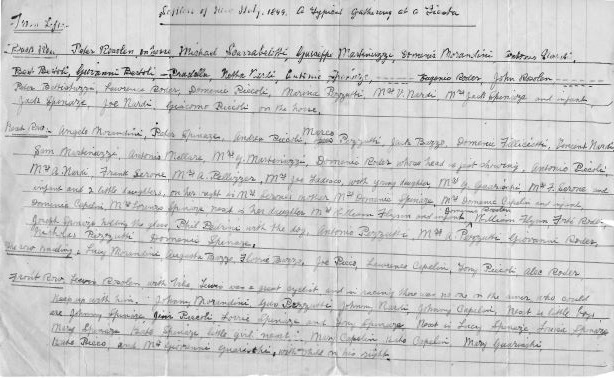 Settlers of New Italy, 1899. A Typical Gathering at a Fiesta
From Left:-
Back Row Peter Roolen on horse Michael Scarrabelotti, Giuseppe Martinuzzi, Domenic Morandini Antonio Nardi.
Bertoli, Giovanni Bertoli - Nardi Antonio Spinaze, Eugenio Roder John Roolen
Peter Battistuzzi, Lawrence Roder, Domenic Piccoli, Marina Pezzutti Mrs V. Nardi Mrs Jack Spinaze and infant,
Jack Spinaze, Joe Nardi, Giacomo Piccoli on the horse.
Next Row. Angelo Morandini, Peter Spinaze, Andrea Piccoli, Marco Pezzutti Jack Buzzo, Domenic Vincent Nardi
Sam Martinuzzi, Antonio Mellare, Mrs G. Martinuzzi, Domenic Roder whose head is just showing, Antonio Piccoli
Mrs A. Nardi Frank Serone Mrs A. Pellizzer Mrs Joe with young daughter Mrs G. Guarischi Mrs F. Serone and
infant and 2 little daughters, on her right is Mrs Serone's mother Mrs Domenic Spinaze, Mrs Domenic Capelin and infant
Domenic Capelin, Mrs Lorenzo Spinaze next is her daughter Mrs William Flynn and William Flynn Fred Roder
Joseph Spinaze holding the glass Phil with the dog, Antonio Pezzutti, Mrs A. Pezzutti Giovanni Roder,
Nicholas Pezzutti Domenic Spinaze.
standing - Lucy Morandini, Augusta Buzzo, Buzzo, Joe Ricco, Lawrence Capelin, Tony Piccoli also Roder
Front Row Roolen with bike was a great cyclist and in racing there was no one on the river who could
keep up with him. Johnny Morandini Guss Pezzutti Johnny Nardi Johnny Capelin, Next is little boys,
are Johnny Spinaze Piccoli Lorrie Spinaze and Tom Spinaze. Next is Lucy Spinaze, Louisa Spinaze
Mary Spinaze Spinaze little girl next. Mary Capelin Capelin, Mary Guarischi
Ricco, and Mrs Giovanni Guarischi, with child on her right.